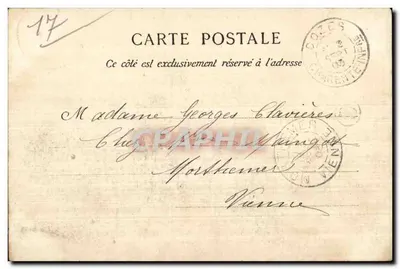 17
CARTE POSTALE
Ce côté est exclusivement réservé à l'adresse
COZES
CHARENTE INFRE
Madame Georges Clavières
Chez
Morthemer
Vienne
CPAPHIL